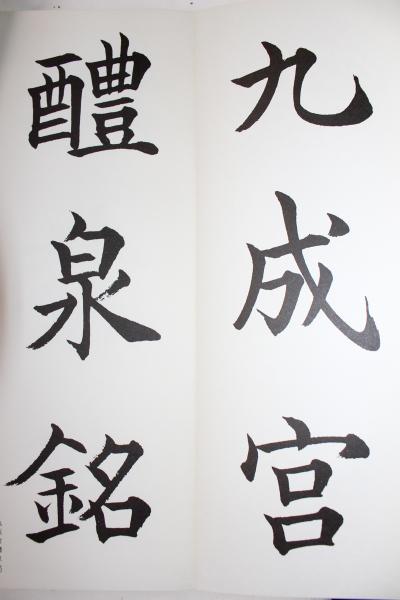 九成宮
醴泉銘